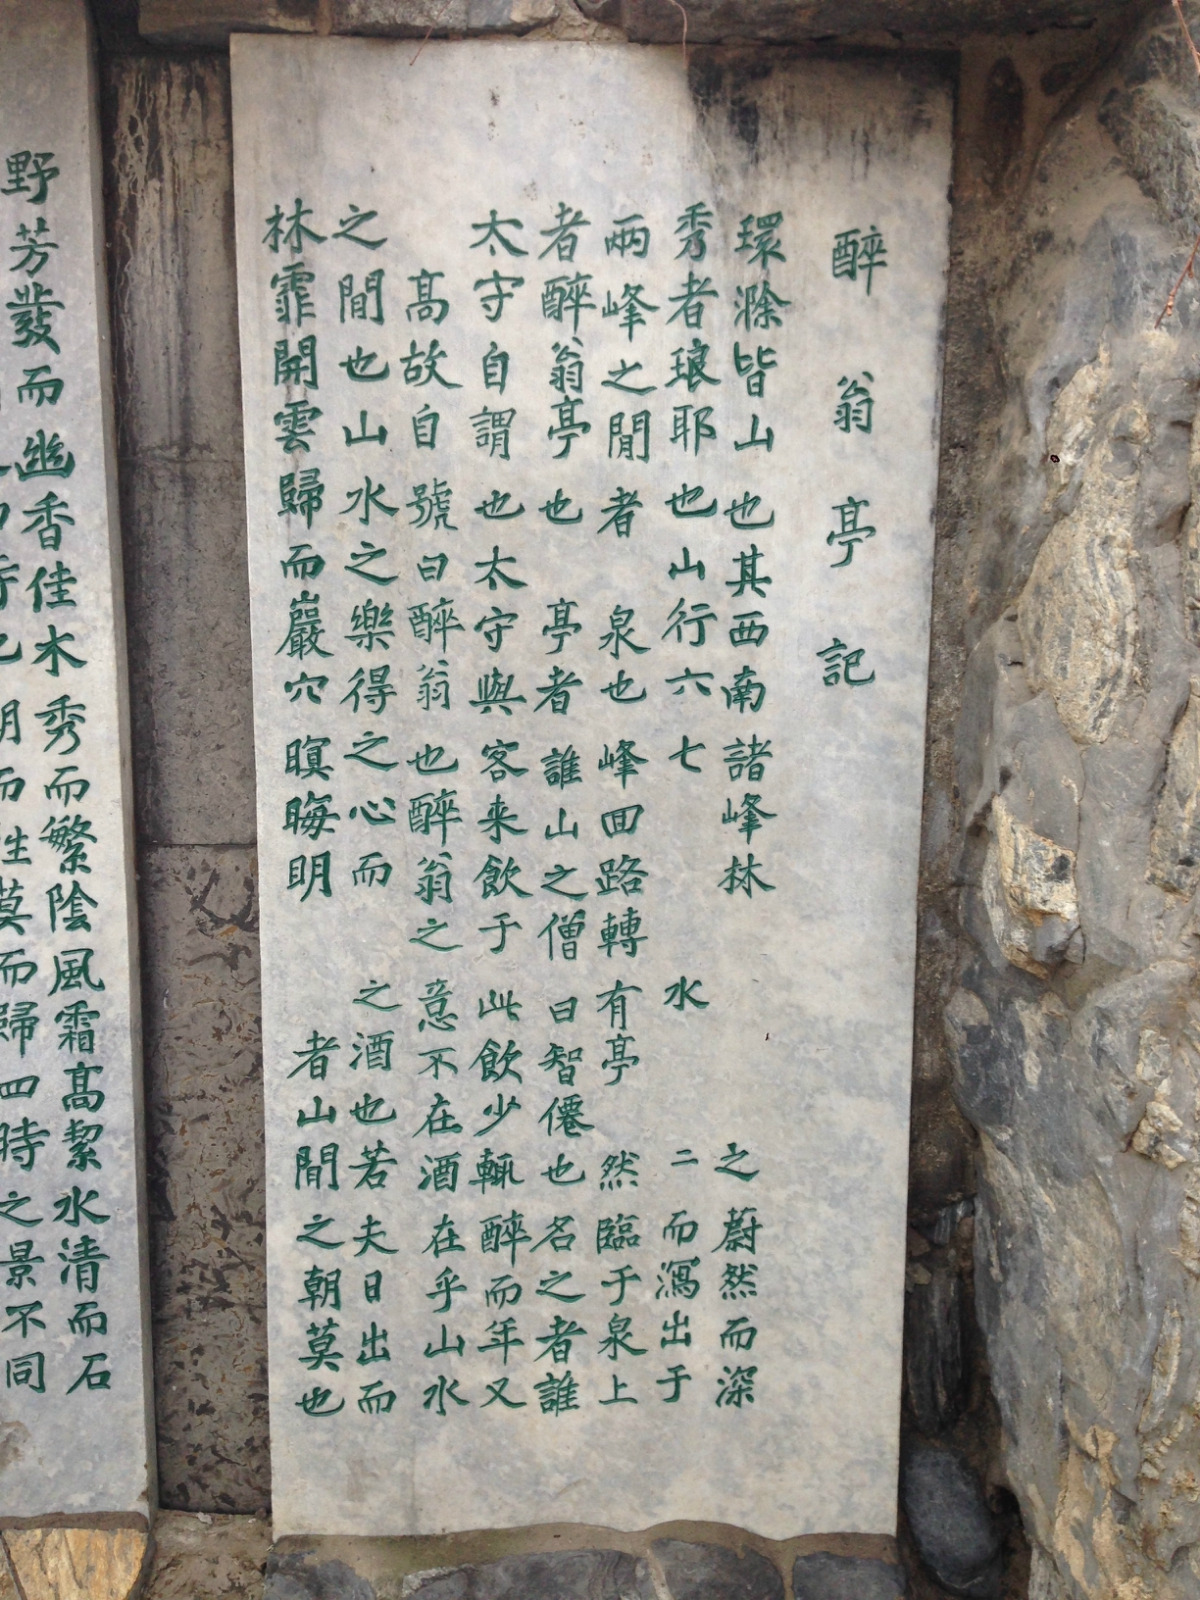 醉翁亭記
環滁皆山也其西南諸峰林 之蔚然而深
秀者琅耶也山行六七 水 二而瀉出于
兩峰之閒者 泉也峰回路轉有亭 然臨于泉上
者醉翁亭也 亭者誰山之僧曰智僊也名之者誰
太守自謂也太守與客来飲于此飲少輒醉而年又
高故自號曰醉翁也醉翁之意不在酒在乎山水
之間也山水之樂得之心而 之酒也若夫日出而
林霏開雲歸而巖穴暝晦明 者山間之朝莫也
野芳發而幽香佳木秀而繁陰風霜高絜水清而石
時也朝而往莫而歸四時之景不同